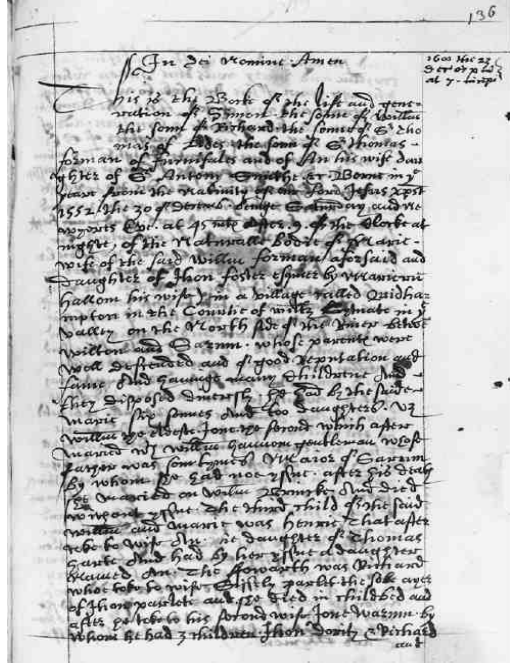 136
In dei Nomine Amen
1600 the 23
at 7
This is the Boke of the life and gene-
ration of Simon the sonne of William
the sonn of Richard the sonne of Sr Tho
mas of Edes the sonn of Sr Thomas
forman of furnifales and of An his wife dau
ghter of Sr Antony Smithe &c Borne in ye
yeare from the nativity of our Lord Jesus xpst
1552 the 30 of Decemb. beinge Saturday and new
yeares Eve. at 45 mts after 9 of the Clocke at
nighte, of the Naturalle bodie of Marie
wife of the said William forman aforesaid and
Daughter of Jhon foster esquier by Mariewith
hallom his wife in a village called Quidha-
mpton in the Countie of wiltz situate in ye
valley on the North side of the River betwen
willton and Sarum. whose parents were
well descended and of good reputation and
fame And havinge many Children And
they disposed diversly he had by the saide
Marie six sonnes and too daughters. vz
William the eldeste Jone the second which after
maried wth William hancom gentleman whose
father was somtymes Maior of Sarum
By whom she had noe yssue. after his death
she maried on William And died
without yssue The third child of the said
William and Marie was henrie That after
toke to wife An the daughter of Thomas
And had by her yssue a daughter
named An. The fowarth was Richard
whoe toke to wife parlet the sole ayer
of Jhon parlete and she died in childbed and
after he toke to his second wife Jone Warum by
whom he had 3 children Jhon Dority & Richard
and